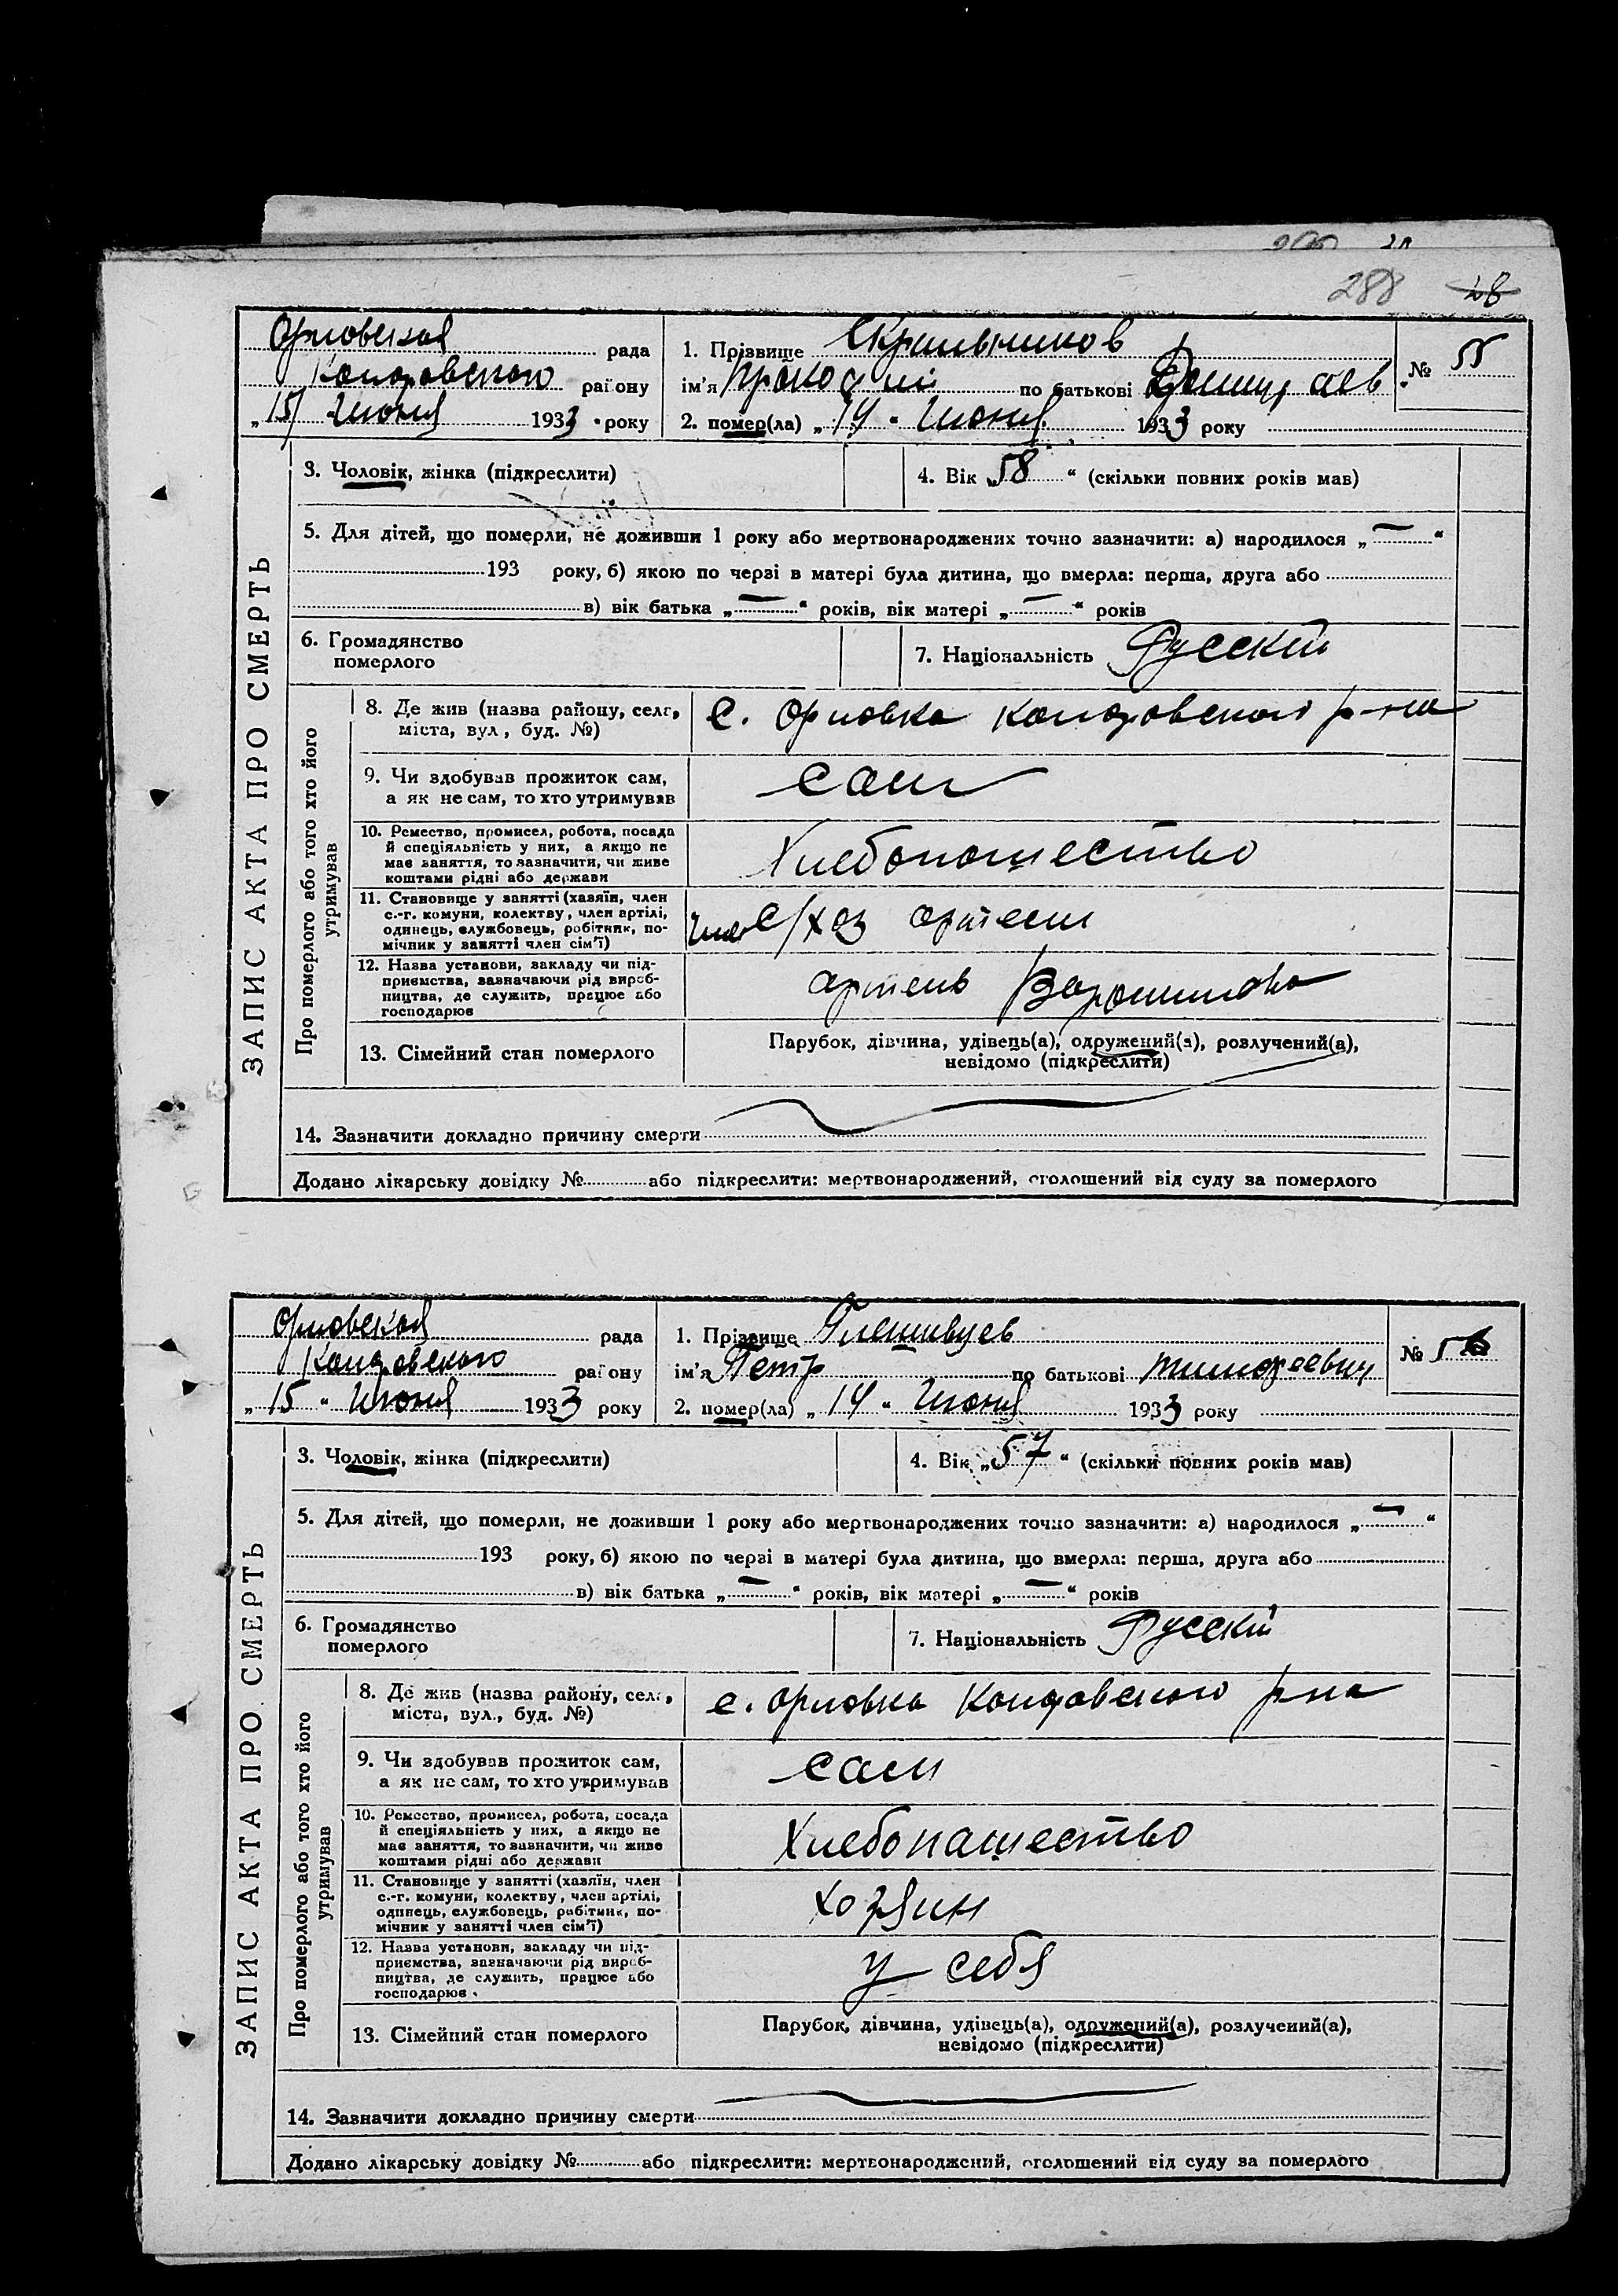 288 28
Орловская рада
Кагоровского району
„15" Июня 1933 року
1. Прізвище Скрыльников
ім'я по батькові
№ 55
2. помер(ла) „14" Июня 1933 року
ЗАПИС АКТА ПРО СМЕРТЬ
3. Чоловік, жінка (підкреслити)
4. Вік „58" (скільки повних років мав)
5. Для дітей, що померли, не доживши 1 року або мертвонароджених точно зазначити: а) народилося „—"
193 року, б) якою по черзі в матері була дитина, що вмерла: перша, друга або
в) вік батька „—" років, вік матері „—" років
6. Громадянство
померлого
7. Національність Русский
Про померлого або того хто його
утримував
8. Де жив (назва району, села,
міста, вул, буд. №)
с. Орловка р-на
9. Чи здобував прожиток сам,
а як не сам, то хто утримував
сам
10. Ремество, промисел, робота, посада
й спеціяльність у них, а якщо не
має заняття, то зазначити, чи живе
коштами рідні або держави
Хлебопашество
11. Становище у занятті (хазяїн, член
с.-г. комуни, колективу, член артілі,
одинець, службовець, робітник, по-
мічник у занятті член сім'ї)
член с/хоз артели
12. Назва установи, закладу чи під-
приємства, зазначаючи рід вироб-
ництва, де служить, працює або
господарює
артель Ворошилова
13. Сімейний стан померлого
Парубок, дівчина, удівець(а), одружений(а), розлучений(а),
невідомо (підкреслити)
14. Зазначити докладно причину смерти
Додано лікарську довідку № або підкреслити: мертвонароджений, оголошений від суду за померлого
Орловская рада
району
„15" Июня 1933 року
1. Прізвище Плешивцев
ім'я Петр по батькові Тимофеевич
№ 56
2. помер(ла) „14" Июня 1933 року
ЗАПИС АКТА ПРО СМЕРТЬ
3. Чоловік, жінка (підкреслити)
4. Вік „57" (скільки повних років мав)
5. Для дітей, що померли, не доживши 1 року або мертвонароджених точно зазначити: а) народилося „—"
193 року, б) якою по черзі в матері була дитина, що вмерла: перша, друга або
в) вік батька „—" років, вік матері „—" років
6. Громадянство
померлого
7. Національність Русский
Про померлого або того хто його
утримував
8. Де жив (назва району, села,
міста, вул., буд. №)
с. Орловка р-на
9. Чи здобував прожиток сам,
а як не сам, то хто утримував
сам
10. Ремество, промисел, робота, посада
й спеціяльність у них, а якщо не
має заняття, то зазначити, чи живе
коштами рідні або держави
Хлебопашество
11. Становище у занятті (хазяїн, член
с.-г. комуни, колективу, член артілі,
одинець, службовець, робітник, по-
мічник у занятті член сім'ї)
хозяин
12. Назва установи, закладу чи під-
приємства, зазначаючи рід вироб-
ництва, де служить, працює або
господарює.
у себя
13. Сімейний стан померлого
Парубок, дівчина, удівець(а), одружений(а), розлучений(а),
невідомо (підкреслити)
14. Зазначити докладно причину смерти
Додано лікарську довідку № або підкреслити: мертвонароджений, оголошений від суду за померлого